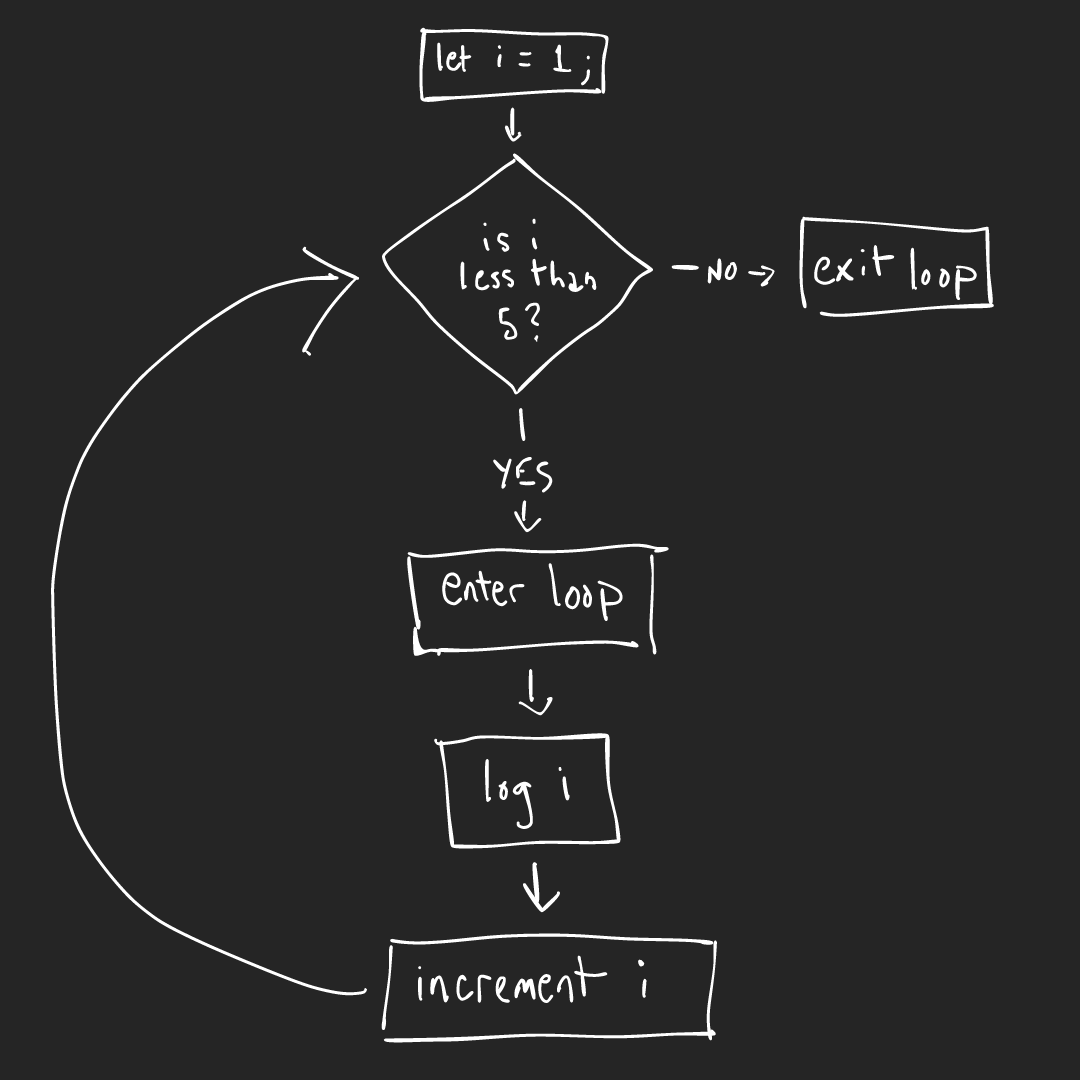 let i = 1;
is i
less than
5?
NO
exit loop
YES
enter loop
log i
increment i